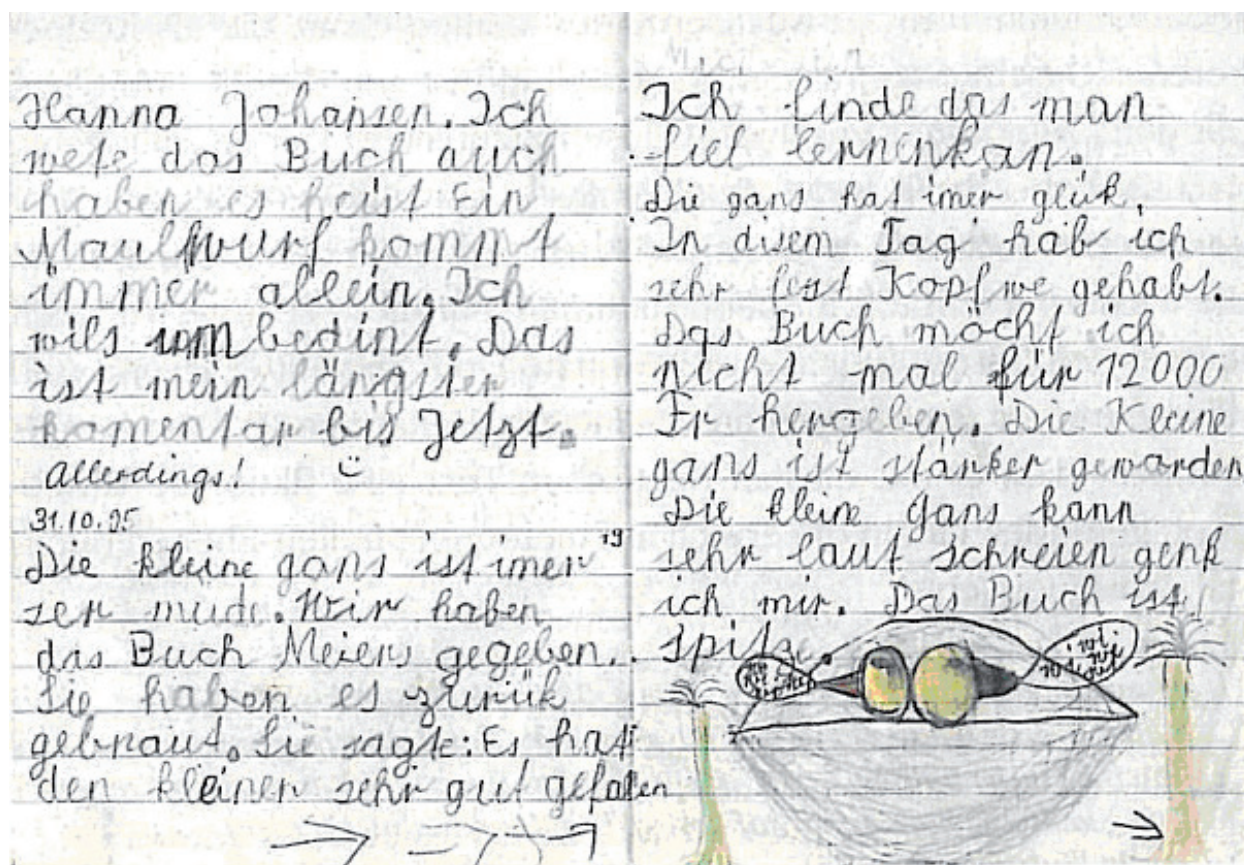 Hanna Johansen. Ich
wete das Buch auch
haben es heist Ein
Maulwurf kommt
immer allein. Ich
wils unbedint. Das
ist mein längster
komentar bis Jetzt.
allerdings!
31.10.95
Die kleine gans ist imer
ser müde. Wir haben
das Buch Meiers gegeben.
Sie haben es zurük
gebraut. Sie sagte: Es hatt
den kleiner sehr gut gefallen
Ich finde das man
fiel lernenkan.
Die gans hat imer glük.
In disem Tag hab ich
sehr fest Kopfwe gehabt.
Das Buch möcht ich
nicht mal für 12000
Fr hergeben. Die Kleine
gans ist stärker gewarden
Die kleine Gans kann
sehr laut schreien genk
ich mir. Das Buch ist
spitze.